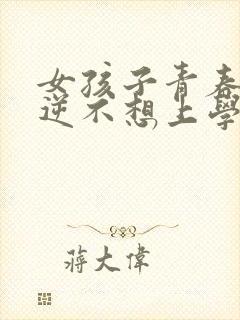 女孩子青春
逆不想上學
蔣大偉